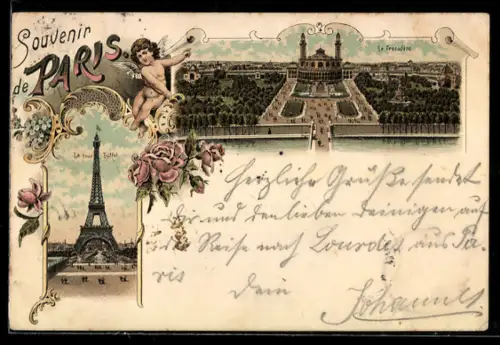 Souvenir
de PARIS.
Le Trocadéro
La tour Eiffel
Herzliche Grüße sendet
Dir und den lieben deinigen auf
der Reise nach Lourdes aus Pa-
ris
Dein Johannes